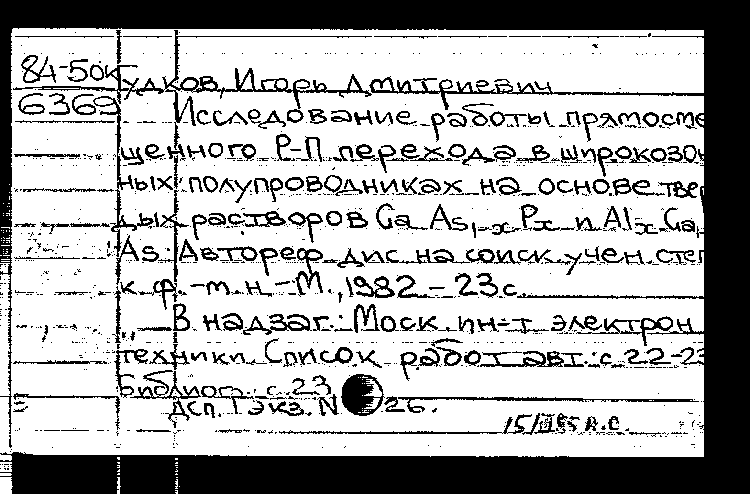 84-50к
6369
Гудков, Игорь Дмитриевич
Исследование работы прямосме
щенного Р-П перехода в широкозон
ных полупроводниках на основе твер
дых растворов Ga As1-x Px и Alx Ga1
As: Автореф. дис. на соиск. учен. степ
к. ф.-т. н. - М., 1982. - 23 с.
В надзаг.: Моск. ин-т электрон.
техники. Список работ авт.: с. 22-23
Библиогр.: с. 23
ДСП. 1 экз. N 26.